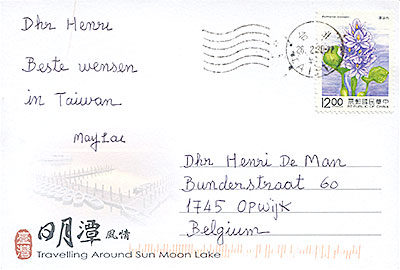 Dhr Henri
Beste wensen
in Taiwan
May Lai
12.00
中華民國郵票
REPUBLIC OF CHINA
Dhr Henri De Man
Bunderstraat 60
1745 Opwijk
Belgium
日月潭 風情
Travelling Around Sun Moon Lake